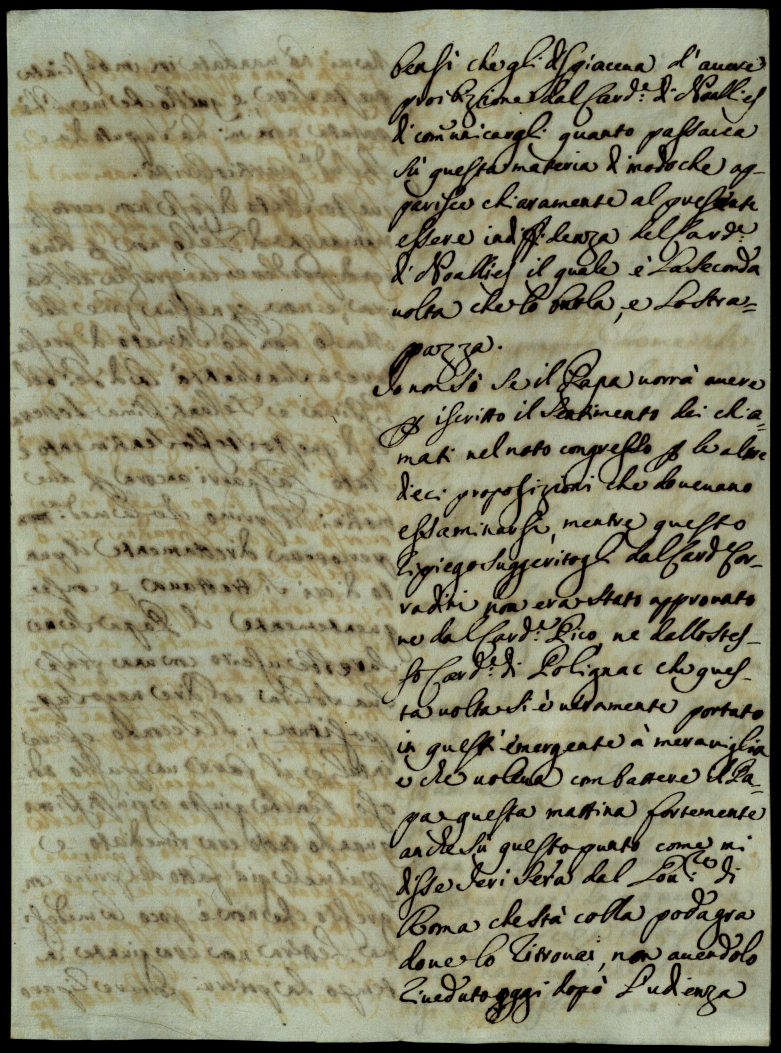 bensi che gli dispiaceva d'auere
proibizione dal Card:e di Noallies
di com̃unicargli quanto passaua
sù questa materia di modo che ap-
parisce chiaramente al presente
essere indiffidenza del Card:e
di Noallies il quale è la seconda
uolta che lo burla, e lo stra=
pazza.
Io non sò se il Papa uorrà auere
p iscritto il sentimento dei chia=
mati nel noto congresso p le altre
dieci proposizioni che doueuano
essaminarsi, mentre questo
ripiego suggeritogli dal Card Cor-
radini non era stato approuato
ne dal Card:e Pico, ne dallo stes-
so Card:e di Polignac che ques-
ta uolta si è ueramente portato
in quest' emergente à marauiglia
e che uoleua combattere il Pa-
pa questa mattina fortemente
anche sù questo punto come mi
disse ieri sera dal di
Roma che stà colla podagra
doue lo ritrouai, non auendolo
riueduto oggi dopò l'udienza